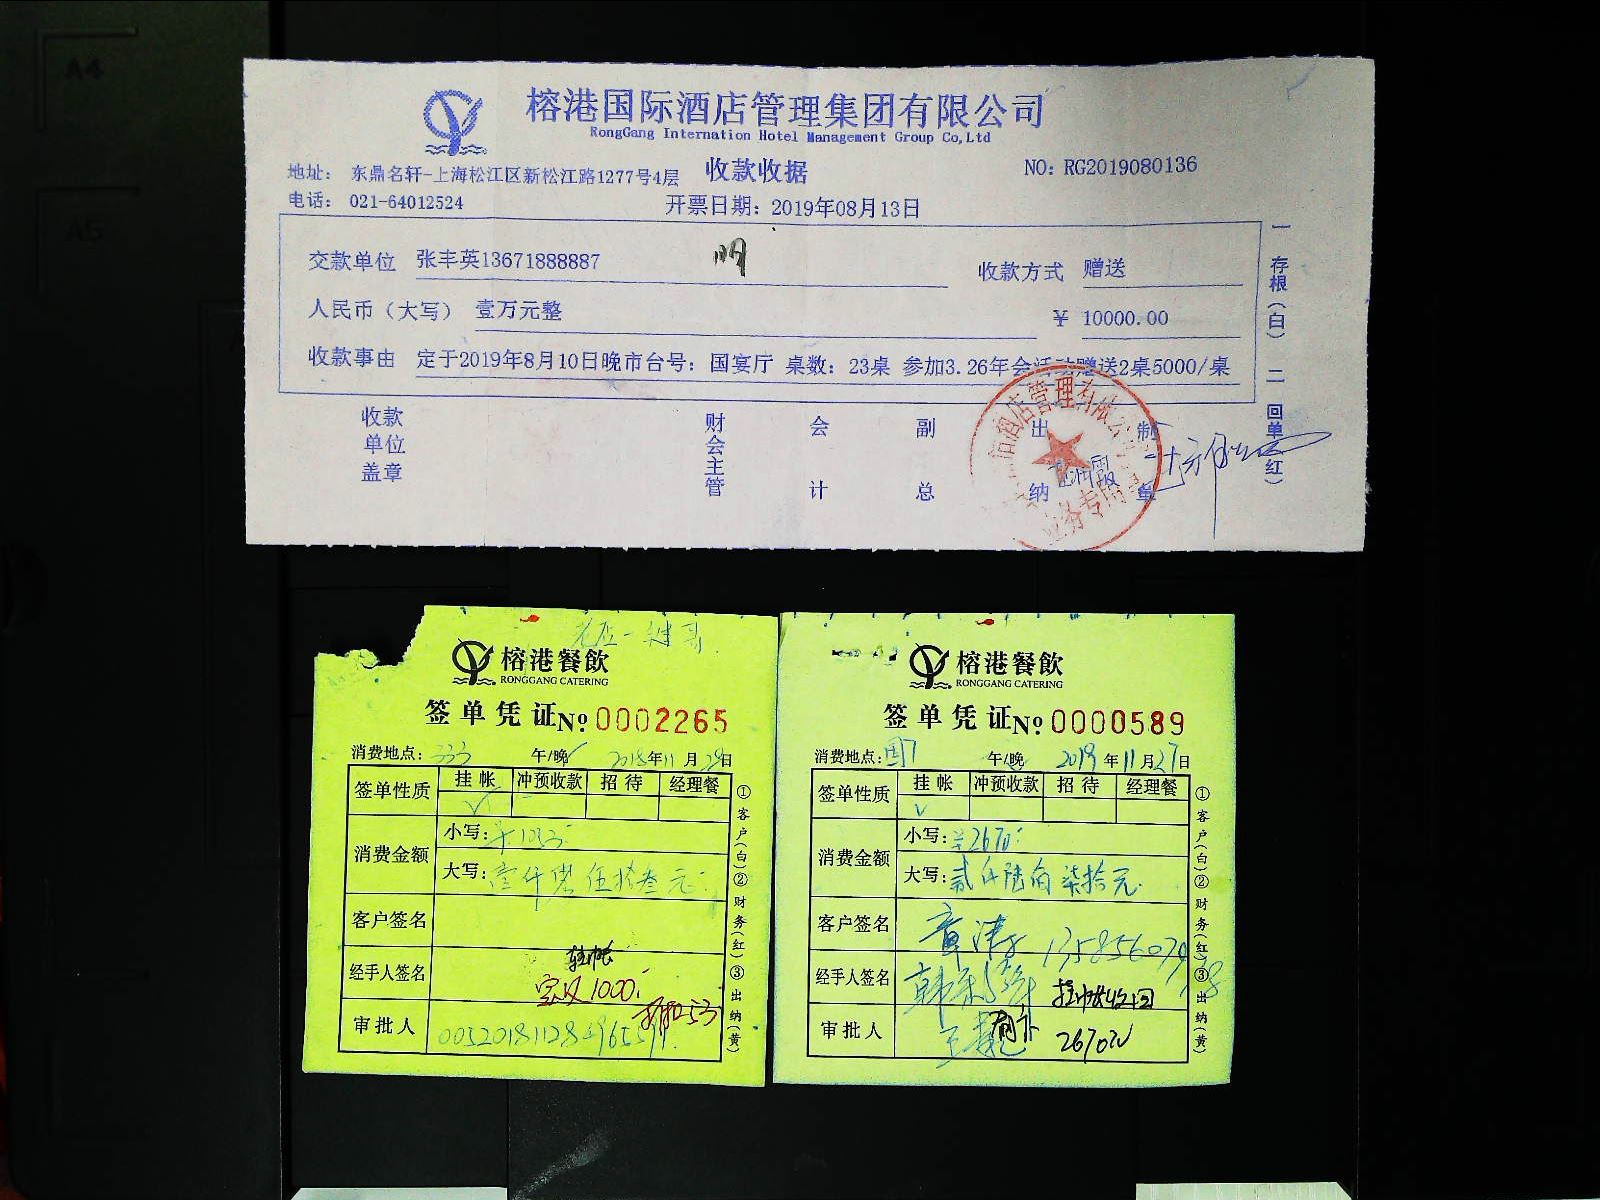 A4
A5
榕港国际酒店管理集团有限公司
RongGang Internation Hotel Management Group Co,Ltd
地址： 东鼎名轩-上海松江区新松江路1277号4层 收款收据 NO: RG2019080136
电话： 021-64012524 开票日期： 2019年08月13日
交款单位 张丰英13671888887 收款方式 赠送
人民币（大写） 壹万元整 ￥ 10000.00
收款事由 定于2019年8月10日晚市台号：国宴厅 桌数：23桌 参加3.26年会活动赠送2桌5000/桌
一 存根（白） 二 回单（红）
收款单位盖章 财会主管 会计 副总 出纳 制单
榕港餐飲
RONGGANG CATERING
签单凭证 No: 0002265
消费地点: 333 午/晚 2018年11月28日
签单性质 挂帐 冲预收款 招待 经理餐
消费金额 小写: ¥1053
大写: 壹仟零伍拾叁元
客户签名
经手人签名 挂帐
实收1000
审批人
①客户(白)②财务(红)③出纳(黄)
榕港餐飲
RONGGANG CATERING
签单凭证 No: 0000589
消费地点: 午/晚 2019年11月27日
签单性质 挂帐 冲预收款 招待 经理餐
消费金额 小写: ¥2670
大写: 贰仟陆佰柒拾元
客户签名
经手人签名
审批人 2670
①客户(白)②财务(红)③出纳(黄)